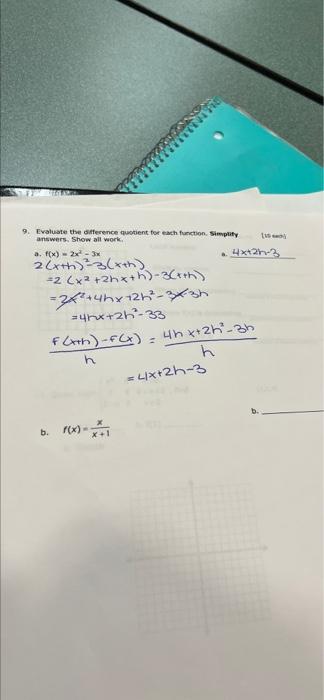 9. Evaluate the difference quotient for each function. Simplify (10 each)
answers. Show all work.
a. f(x) = 2x² - 3x a. 4x+2h-3
2(x+h)²-3(x+h)
=2(x²+2hx+h)-3(x+h)
=2x²+4hx+2h²-3x-3h
=4hx+2h²-33
f(x+h)-f(x) / h = 4hx+2h²-3h / h
=4x+2h-3
b.
b. f(x) = x / x+1